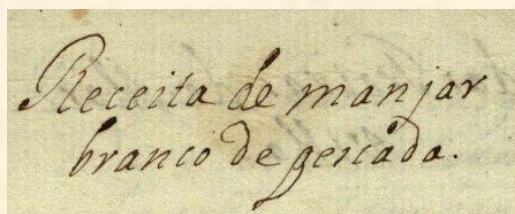 Receita de manjar
branco de gesiada.